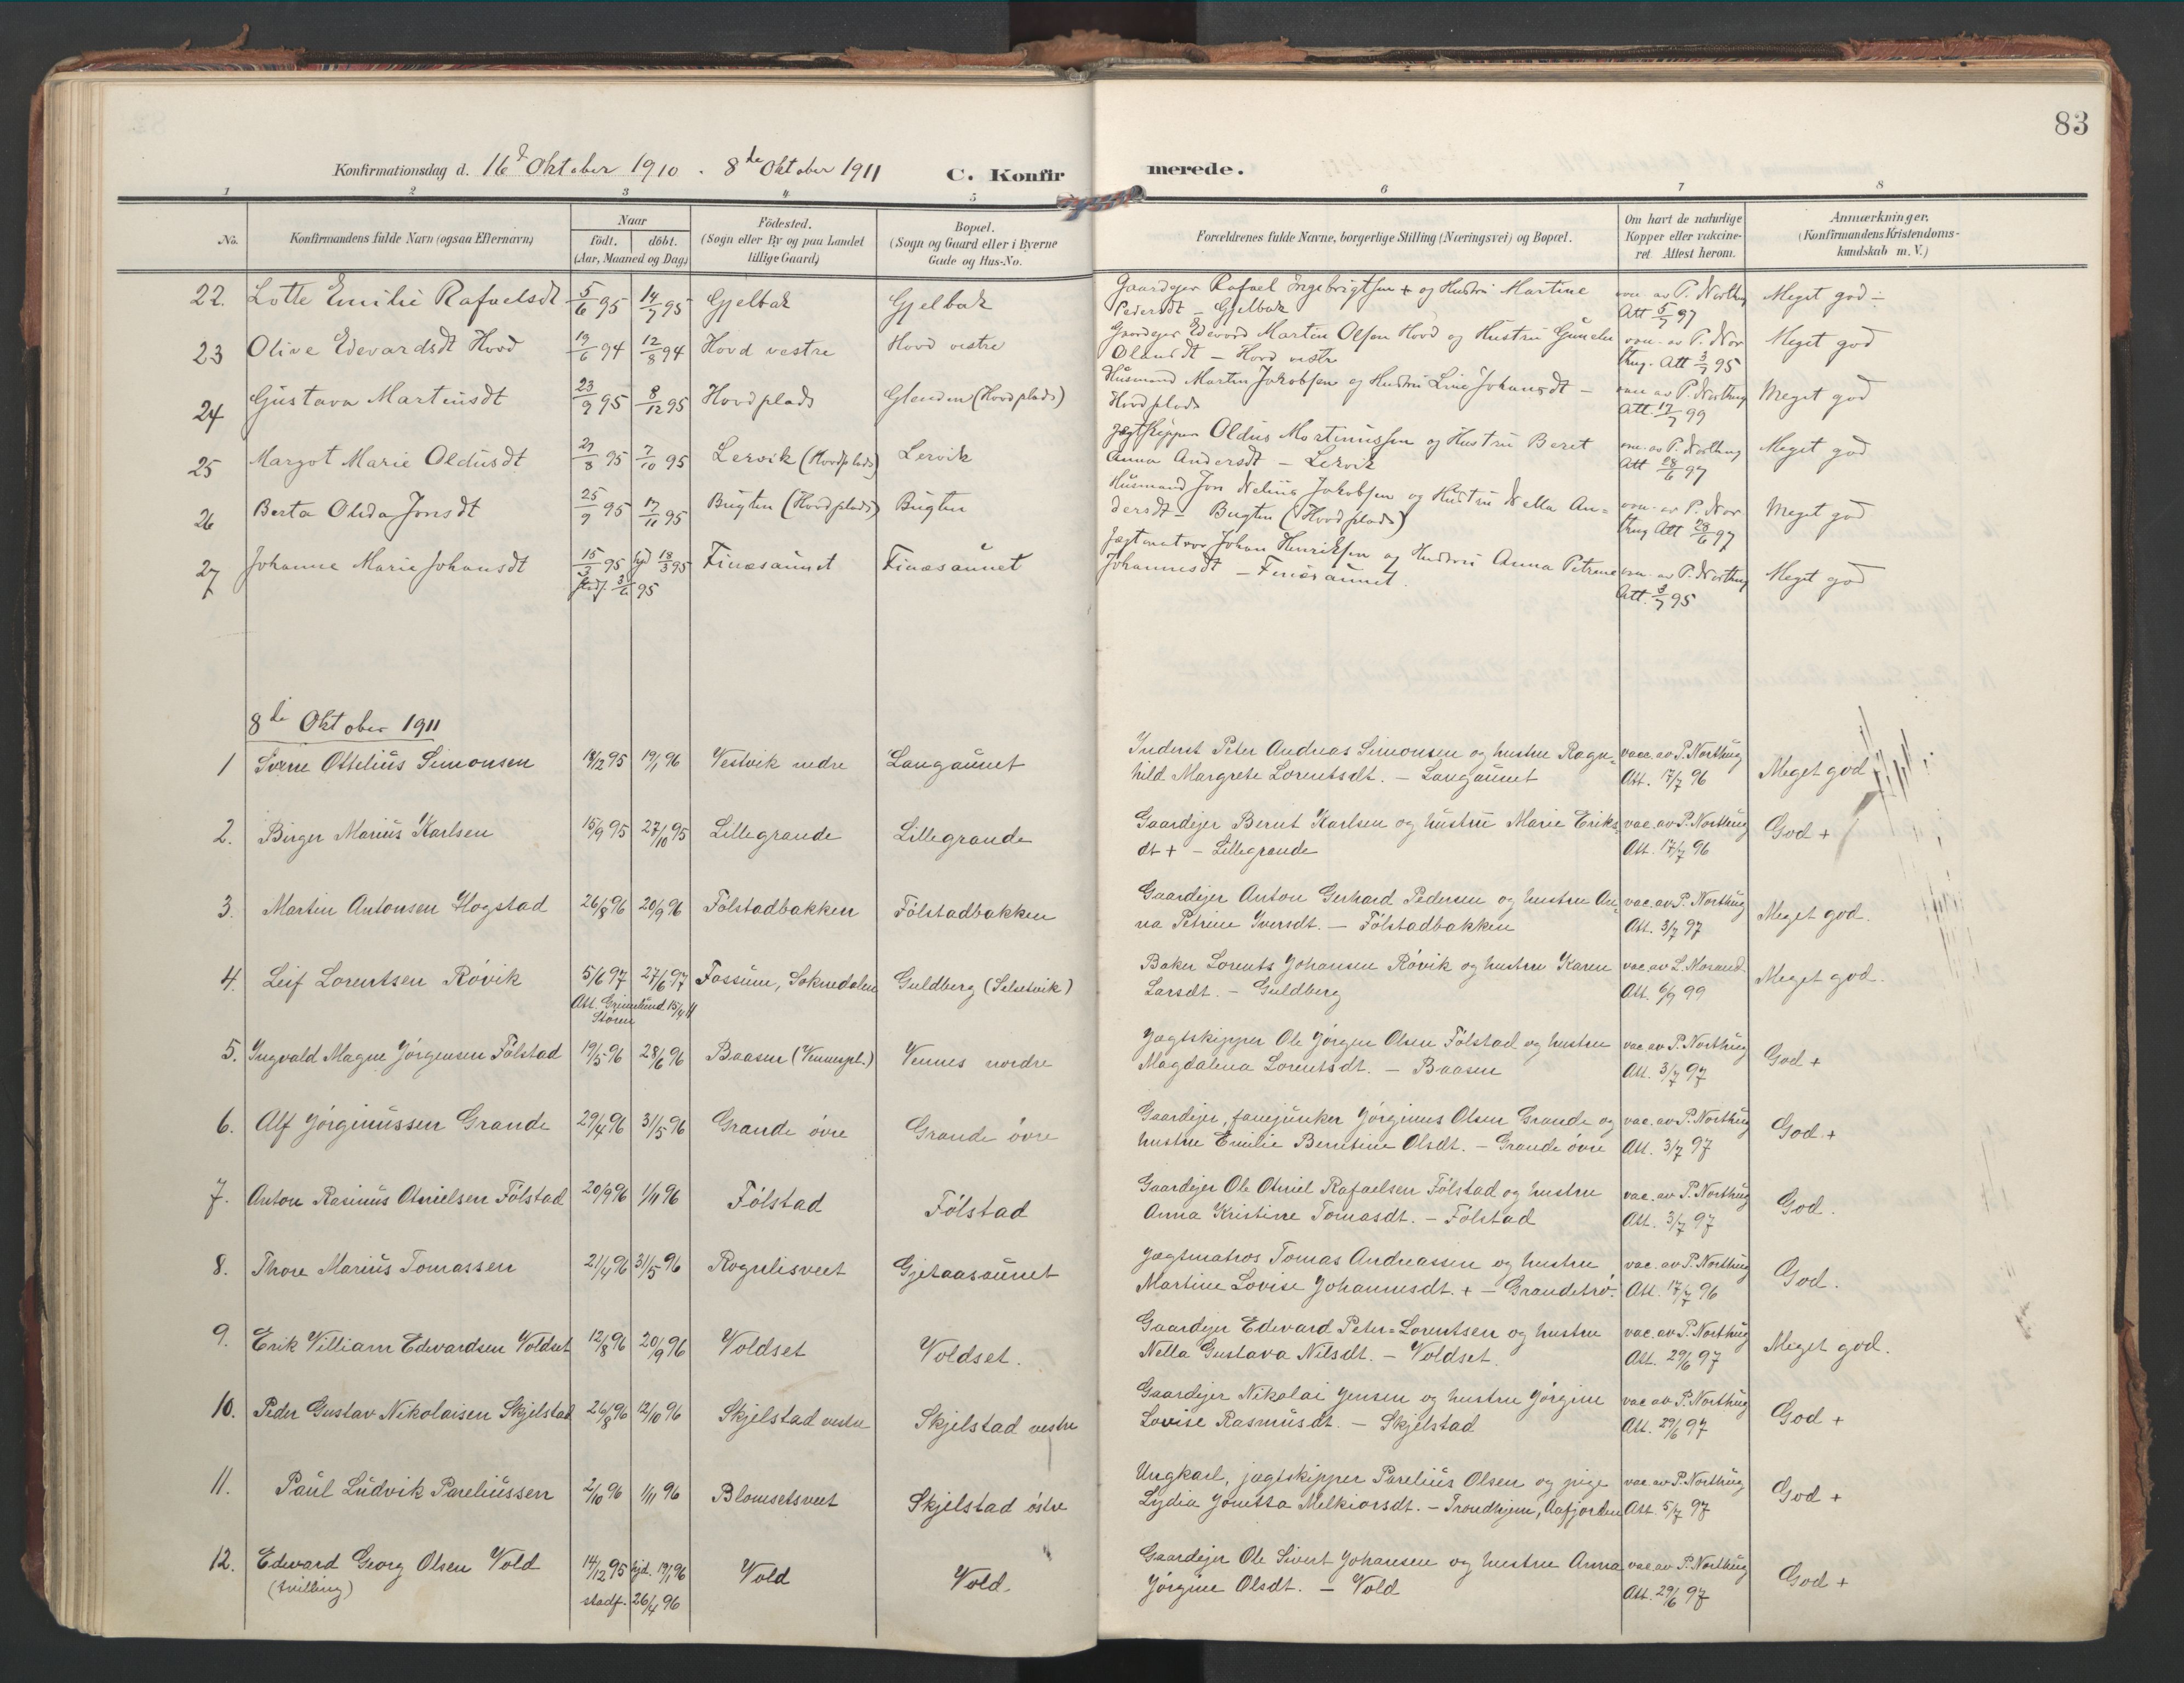 83
Konfirmationsdag d. 16d Oktober 1910. 8de Oktober 1911 C. Konfir merede.
1 2 3 4 5 6 7 8
No. Konfirmandens fulde Navn (ogsaa Efternavn) Naar født. døbt. (Aar, Maaned og Dag) Fødested. (Sogn eller By og paa Landet tillige Gaard) Bopæl. (Sogn og Gaard eller i Byerne Gade og Hus-No. Forældrenes fulde Navne, borgerlige Stilling (Næringsvei) og Bopæl. Om havt de naturlige Kopper eller vakcineret Attest herom. Anmærkninger. (Konfirmandens Kristendomskundskab m. V.)
22. Lotte Emilie Rafaelsdt 5/6 95 14/7 95 Gjelbak Gjelbak Gaardejer Rafael Ingebrigtsen + og Hustru Martine vac. av P. Northug Meget god
Pedersdt – Gjelbak Att 5/7 97
23 Olive Edevardsdt Hovd 19/6 94 12/8 94 Hovd vestre Hovd vestre Gaardejer Edevard Martin Olsen Hovd og Hustru vac. av P. Nor Meget god
Olausdt – Hovd vestre thug. Att 3/7 95
24 Gustava Martinsdt 23/9 95 8/12 95 Hovdplads (Hovdplads) Husmand Martin Jakobsen og Hustru Line Johansdt – vac av P. Northug Meget god
Hovdplads Att. 17/7 99
25 Margot Marie Oldusdt 27/8 95 7/10 95 Lervik (Hovdplads) Lervik Jægtskipper Oldus Martinussen og Hustru Beret vac. av P. Northug Meget god
Anna Andersdt – Lervik Att 28/6 97
26 Berta Olida Jonsdt 25/9 95 17/11 95 Bugten (Hovdplads) Bugten Husmand Jon Nelius Jakobsen og Hustru Nella An= vac. av P. Nor Meget god
dersdt – Bugten (Hovdplads) thug Att 28/6 97
27 Johanne Marie Johansdt 15/3 95 hjd 18/3 95 Finæsaunet Finæsaunet Jægtmatros Johan Henriksen og Hustru Anna Petrine vac. av P. Northug Meget god
stadf. 3/6 95 Johannesdt – Finæsaunet. Att. 3/7 95
8de Oktober 1911
1 Sverre Ottelius Simonsen 18/12 95 19/1 96 Vestvik nedre Langaunet Inderst Peter Andreas Simonsen og hustru Ragn= vacc. av P. Northug Meget god
hild Margrete Lorentsdt. – Langaunet Att. 17/7 96
2. Birger Marius Karlsen 15/9 95 27/10 95 Lillegrande Lillegrande Gaardejer Bernt Karlsen og hustru Marie Eriks= vac. av P. Northug God +
dt + – Lillegrande Att. 17/7 96
3. Martin Antonsen Hogstad 26/8 96 20/9 96 Fölstadbakken Fölstadbakken Gaardejer Anton Gerhard Pedersen og hustru An= vac. av P. Northug Meget god.
na Petrine Iversdt. – Fölstadbakken Att. 3/7 97
4. Leif Lorentsen Rövik 5/6 97 27/6 97 Fossum, Soknedalen Guldberg (Selsetvik) Baker Lorents Johansen Rövik og hustru Karen vac. av L. Mosand. Meget god.
Att. Grimelund 15/4 11 Stören Larsdt. – Guldberg Att. 6/9 99
5. Ingvald Magne Jörgensen Fölstad 19/5 96 28/6 96 Baasen (Vennespl.) Vennes nordre Jægtskipper Ole Jörgen Olsen Fölstad og hustru vac av P. Northug God +
Magdalena Lorentsdt. – Baasen Att. 3/7 97
6. Alf Jörginussen Grande 29/4 96 31/5 96 Grande övre Grande övre Gaardejer, fanejunker Jörginus Olsen Grande og vac. av P. Northug God +
hustru Emilie Berntine Olsdt. – Grande övre Att. 3/7 97
7. Anton Rasinus Otnielsen Fölstad 20/9 96 1/11 96 Fölstad Fölstad Gaardejer Ole Otniel Rafaelsen Fölstad og hustru vac. av P. Northug God.
Anna Kristine Tomasdt. – Fölstad Att. 3/7 97
8. Thore Marius Tomassen 21/4 96 31/5 96 Rognlisveet Gjetaasaunet Jægtmatros Tomas Andreassen og hustru vac. av P. Northug God.
Martine Lovise Johannesdt. + – Grandetrö. Att. 17/7 96
9. Erik Villiam Edvardsen Voldset 12/8 96 20/9 96 Voldset Voldset. Gaardejer Edevard Peter Lorentsen og hustru vac. av P. Northug Meget god.
Nella Gustava Nilsdt. – Voldset. Att. 29/6 97
10. Peder Gustav Nikolaisen Skjelstad 26/8 96 12/10 96 Skjelstad vestre Skjelstad vestre Gaardejer Nikolai Jensen og hustru Jörgine vac av P. Northug God +
Lovise Rasmusdt. – Skjelstad Att. 29/6 97
11. Paul Ludvik Pareliussen 2/10 96 1/11 96 Blomsetsveet Skjelstad östre Ungkarl, jægtskipper Parelius Olsen og pige vac av P. Northug God +
Lydia Jonetta Melkiorsdt. – Trondhjem, Aafjorden Att. 5/7 97
12. Edevard Georg Olsen Vold 14/12 95 hjd. 19/1 96 Vold Vold. Gaardejer Ole Sivert Johansen og hustru Anna vac. av P. Northug God +
(tvilling) stadf. 26/4 96 Jörgine Olsdt. – Vold Att. 29/6 97